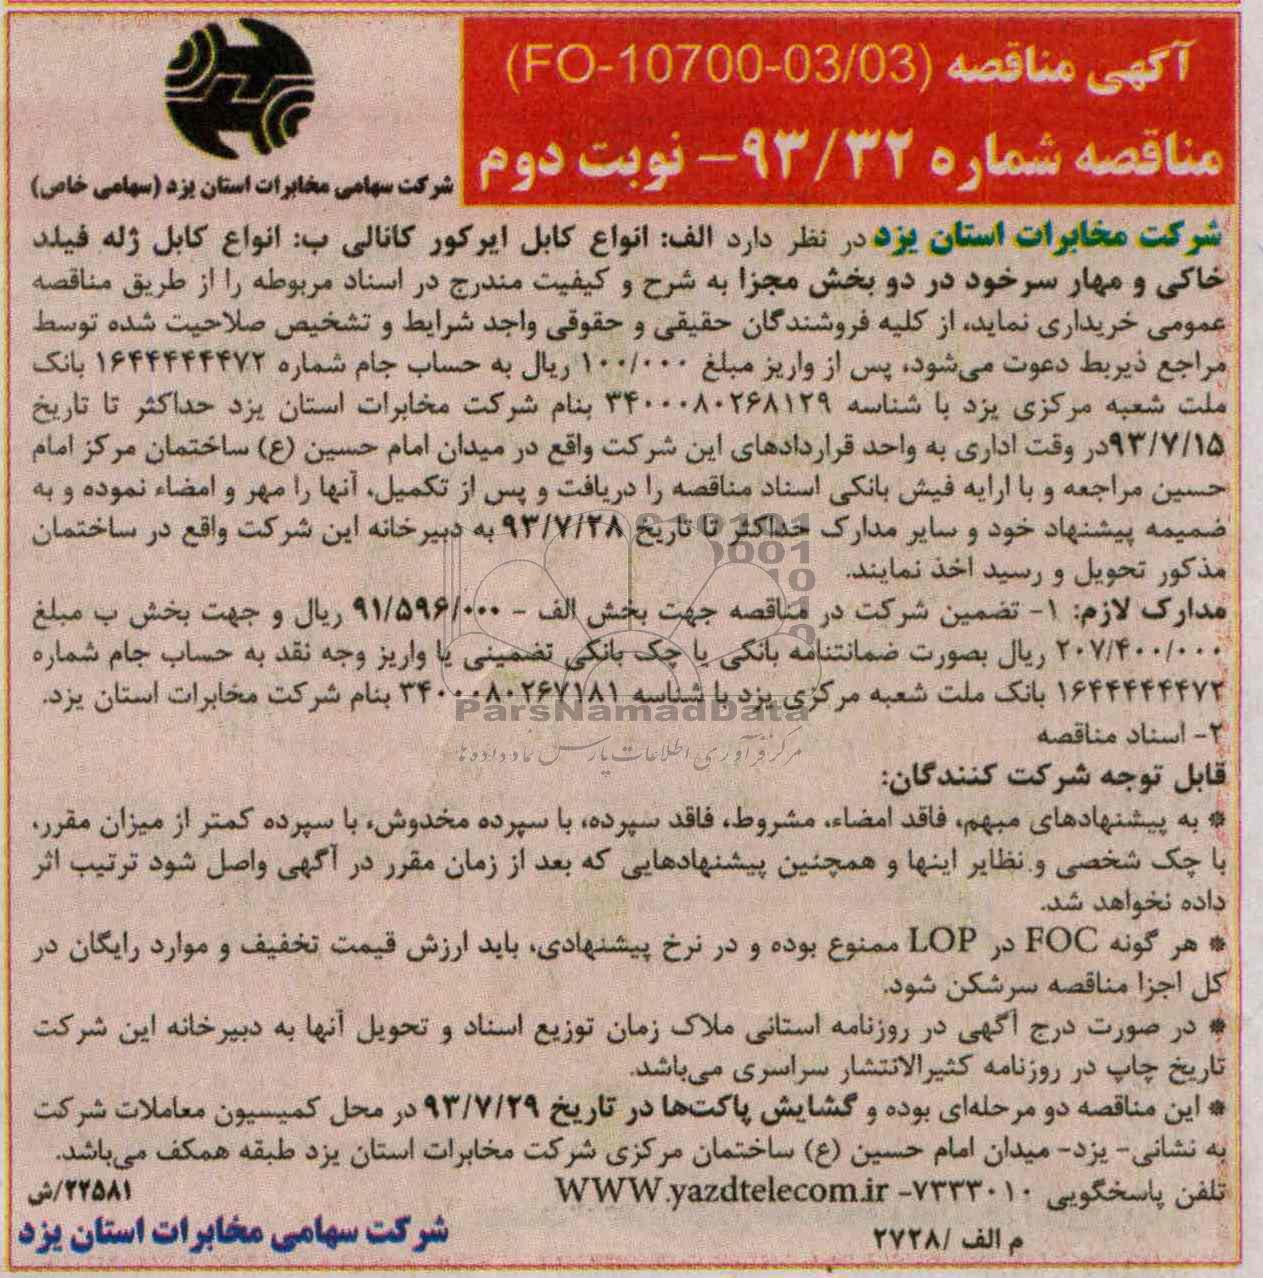 آگهی مناقصه (FO-10700-03/03)
مناقصه شماره ۹۳/۳۲- نوبت دوم
شرکت سهامی مخابرات استان یزد (سهامی خاص)
شرکت مخابرات استان یزد در نظر دارد الف: انواع کابل ایرکور کانالی ب: انواع کابل ژله فیلد
خاکی و مهار سرخود در دو بخش مجزا به شرح و کیفیت مندرج در اسناد مربوطه را از طریق مناقصه
عمومی خریداری نماید، از کلیه فروشندگان حقیقی و حقوقی واجد شرایط و تشخیص صلاحیت شده توسط
مراجع ذیربط دعوت می‌شود، پس از واریز مبلغ ۱۰۰/۰۰۰ ریال به حساب جام شماره ۱۶۴۴۴۴۴۴۷۲ بانک
ملت شعبه مرکزی یزد با شناسه ۳۴۰۰۰۸۰۲۶۸۱۲۹ بنام شرکت مخابرات استان یزد حداکثر تا تاریخ
۹۳/۷/۱۵در وقت اداری به واحد قراردادهای این شرکت واقع در میدان امام حسین (ع) ساختمان مرکز امام
حسین مراجعه و با ارایه فیش بانکی اسناد مناقصه را دریافت و پس از تکمیل، آنها را مهر و امضاء نموده و به
ضمیمه پیشنهاد خود و سایر مدارک حداکثر تا تاریخ ۹۳/۷/۲۸ به دبیرخانه این شرکت واقع در ساختمان
مذکور تحویل و رسید اخذ نمایند.
مدارک لازم: ۱- تضمین شرکت در مناقصه جهت بخش الف - ۹۱/۵۹۶/۰۰۰ ریال و جهت بخش ب مبلغ
۲۰۷/۴۰۰/۰۰۰ ریال بصورت ضمانتنامه بانکی یا چک بانکی تضمینی یا واریز وجه نقد به حساب جام شماره
۱۶۴۴۴۴۴۴۷۲ بانک ملت شعبه مرکزی یزد با شناسه ۳۴۰۰۰۸۰۲۶۷۱۸۱ بنام شرکت مخابرات استان یزد.
ParsNamadData
۲- اسناد مناقصه
مرکز فرآوری اطلاعات پارس نماد داده ها
قابل توجه شرکت کنندگان:
* به پیشنهادهای مبهم، فاقد امضاء، مشروط، فاقد سپرده، با سپرده مخدوش، با سپرده کمتر از میزان مقرر،
با چک شخصی و نظایر اینها و همچنین پیشنهادهایی که بعد از زمان مقرر در آگهی واصل شود ترتیب اثر
داده نخواهد شد.
* هر گونه FOC در LOP ممنوع بوده و در نرخ پیشنهادی، باید ارزش قیمت تخفیف و موارد رایگان در
کل اجزا مناقصه سرشکن شود.
* در صورت درج آگهی در روزنامه استانی ملاک زمان توزیع اسناد و تحویل آنها به دبیرخانه این شرکت
تاریخ چاپ در روزنامه کثیرالانتشار سراسری می‌باشد.
* این مناقصه دو مرحله‌ای بوده و گشایش پاکت‌ها در تاریخ ۹۳/۷/۲۹ در محل کمیسیون معاملات شرکت
به نشانی- یزد- میدان امام حسین (ع) ساختمان مرکزی شرکت مخابرات استان یزد طبقه همکف می‌باشد.
تلفن پاسخگویی ۷۲۳۳۰۱۰- WWW.yazdtelecom.ir
۲۲۵۸۱/ش
م الف /۲۷۲۸
شرکت سهامی مخابرات استان یزد